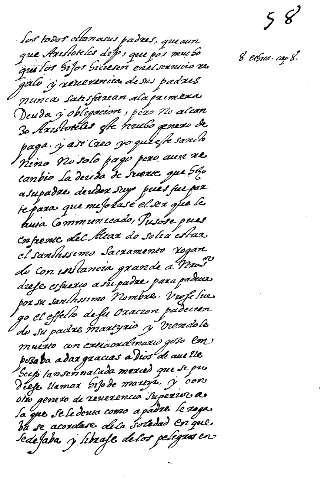 58
los todos ottanasus padres, que aun
que Aristoteles dijo que por mucho
que los hijos hiciesen en el servicio re
galo y reverencia de sus padres
nunca satisfarcan a la primera
Deuda y obligacion, pero No alcan
zo Aristoteles este nuebo genero de
paga, y asi creo yo que este sancto
Nino No solo pago pero aun re
canbio la deuda de suerte, que hizo
a su padre deudor suyo pues fue par
te para que mejorase el ser que le
huia Communicado, Pusose pues
Enfrente del Altar do solia estar
el santissimo Sacramento rogan
do Con instancia grande a Nro sr
diese esfuerço a su padre para padecer
por su santissimo Nombre. Viose lue
go el effecto de su Oracion padecien
do su padre Martyrio y Viendole
muerto con extraordinario goso em
pesaba a dar gracias a Dios de auelle
hecho tan senalada merced que se pu
diese llamar hijo de martyr, y con
otro genero de reverencia Superior a
la que se le deuia como a padre le roga
ba se acordase de la Soledad en que
le dejaba y librase de los peligros en
8 ethicor. cap. 8.